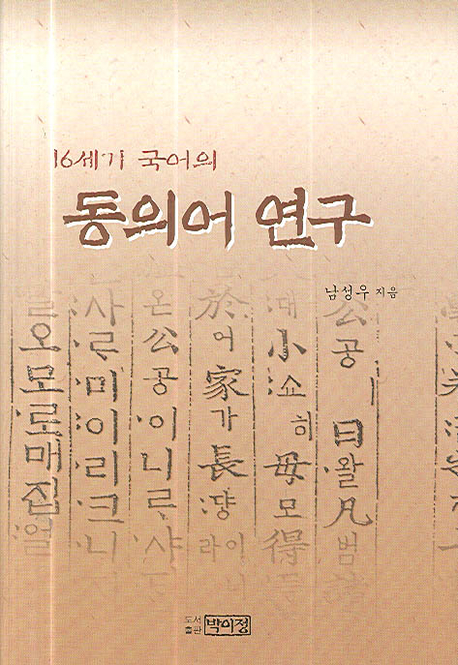 16세기 국어의
동의어 연구
남성우 지음
公공ㅣ曰왈凡범諸
대小:쇼히毋모得득
於어家가長:댱이
라
온公공·이니ᄅᆞ·샤
:사ᄅᆞ·미:이리·크니
오모로매집얼
도서
출판 박이정